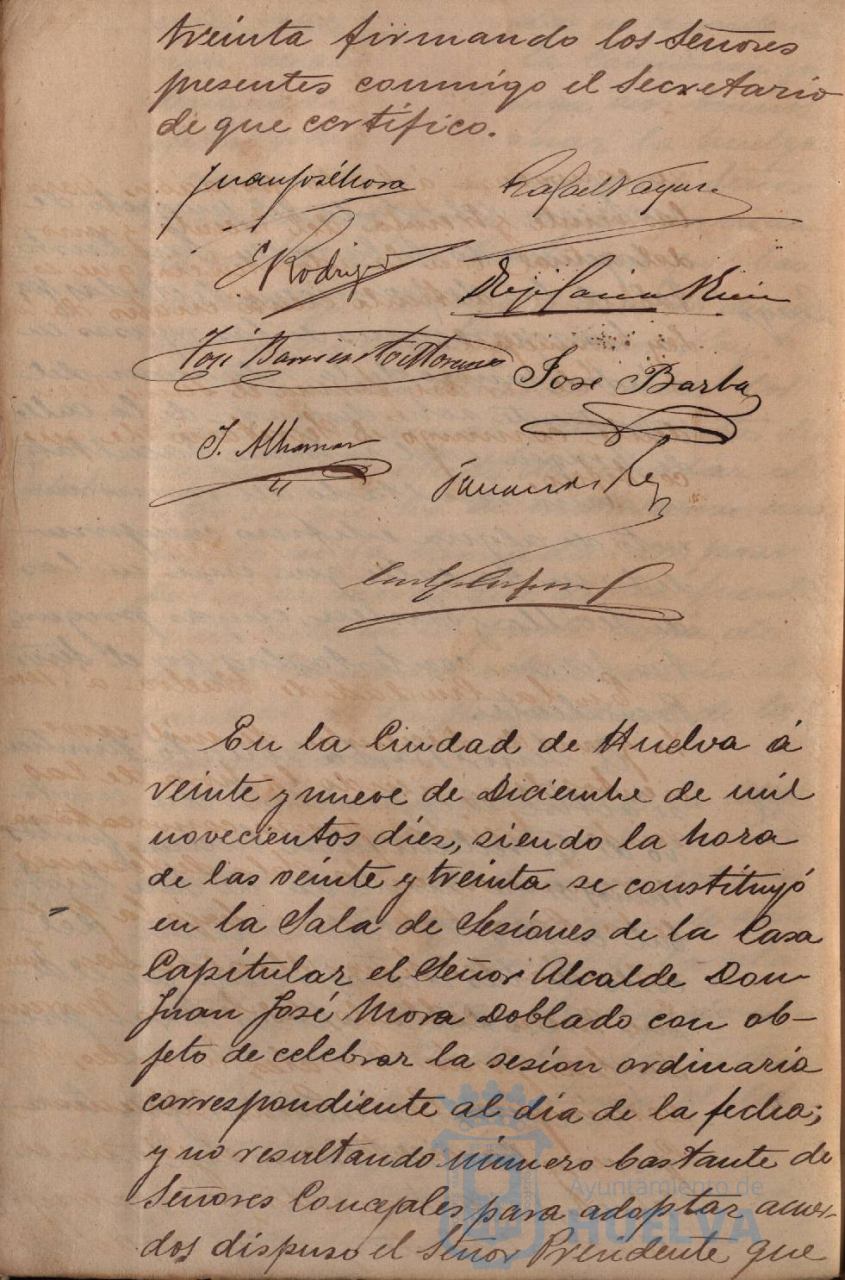 treinta firmando los Señores
presentes conmigo el Secretario
de que certifico.
Juan José Mora
Rafael
E Rodrig
José
José Barba
J. Alhamar
En la Ciudad de Huelva á
veinte y nueve de Diciembre de mil
novecientos diez, siendo la hora
de las veinte y treinta se constituyó
en la Sala de Sesiones de la Casa
Capitular el Señor Alcalde Don
Juan José Mora Doblado con ob-
jeto de celebrar la sesion ordinaria
correspondiente al dia de la fecha;
y no resultando número bastante de
Señores Concejales para adoptar acuer-
dos dispuso el Señor Presidente que
Ayuntamiento de
HUELVA